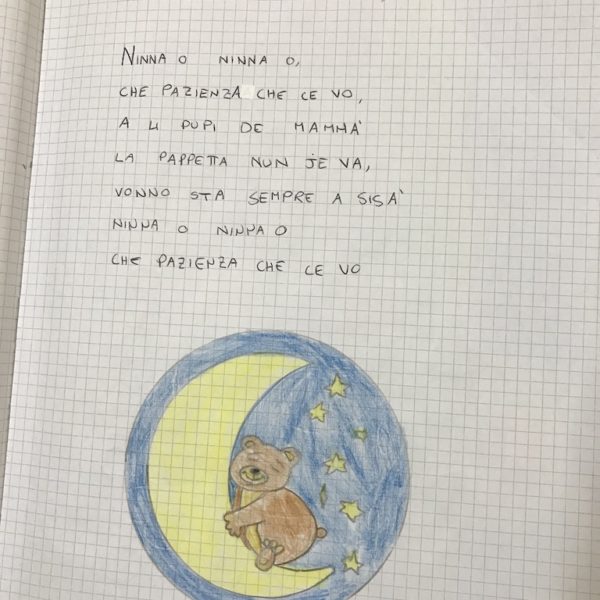 NINNA O NINNA O,
CHE PAZIENZA CHE CE VO,
A LI PUPI DE MAMMÀ
LA PAPPETTA NUN JE VA,
VONNO STA SEMPRE A SISÀ
NINNA O NINNA O
CHE PAZIENZA CHE CE VO